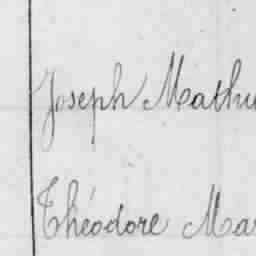 Joseph Mathu
Théodore Mar